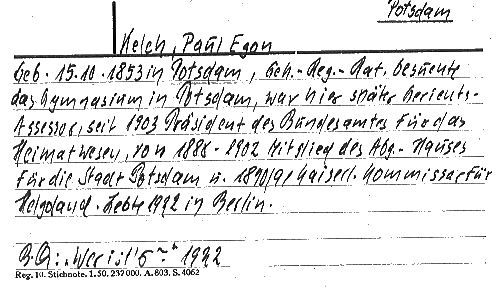 Potsdam
Kelch, Paul Egon
Geb. 15.10.1853 in Potsdam, Geh.-Reg.-Rat, besuchte
das Gymnasium in Potsdam, war hier später Gerichts-
Assessor, seit 1903 Präsident des Bundesamtes für das
Heimatwesen, von 1886-1902 Mitglied des Abg.-Hauses
für die Stadt Potsdam u. 1890/91 Kaiserl. Kommissar für
Helgoland. Lebte 1922 in Berlin.
B.Q.: "Wer ist's" 1922
Reg. III. Stichnote. 1.50. 237000. A. 803. S. 4062